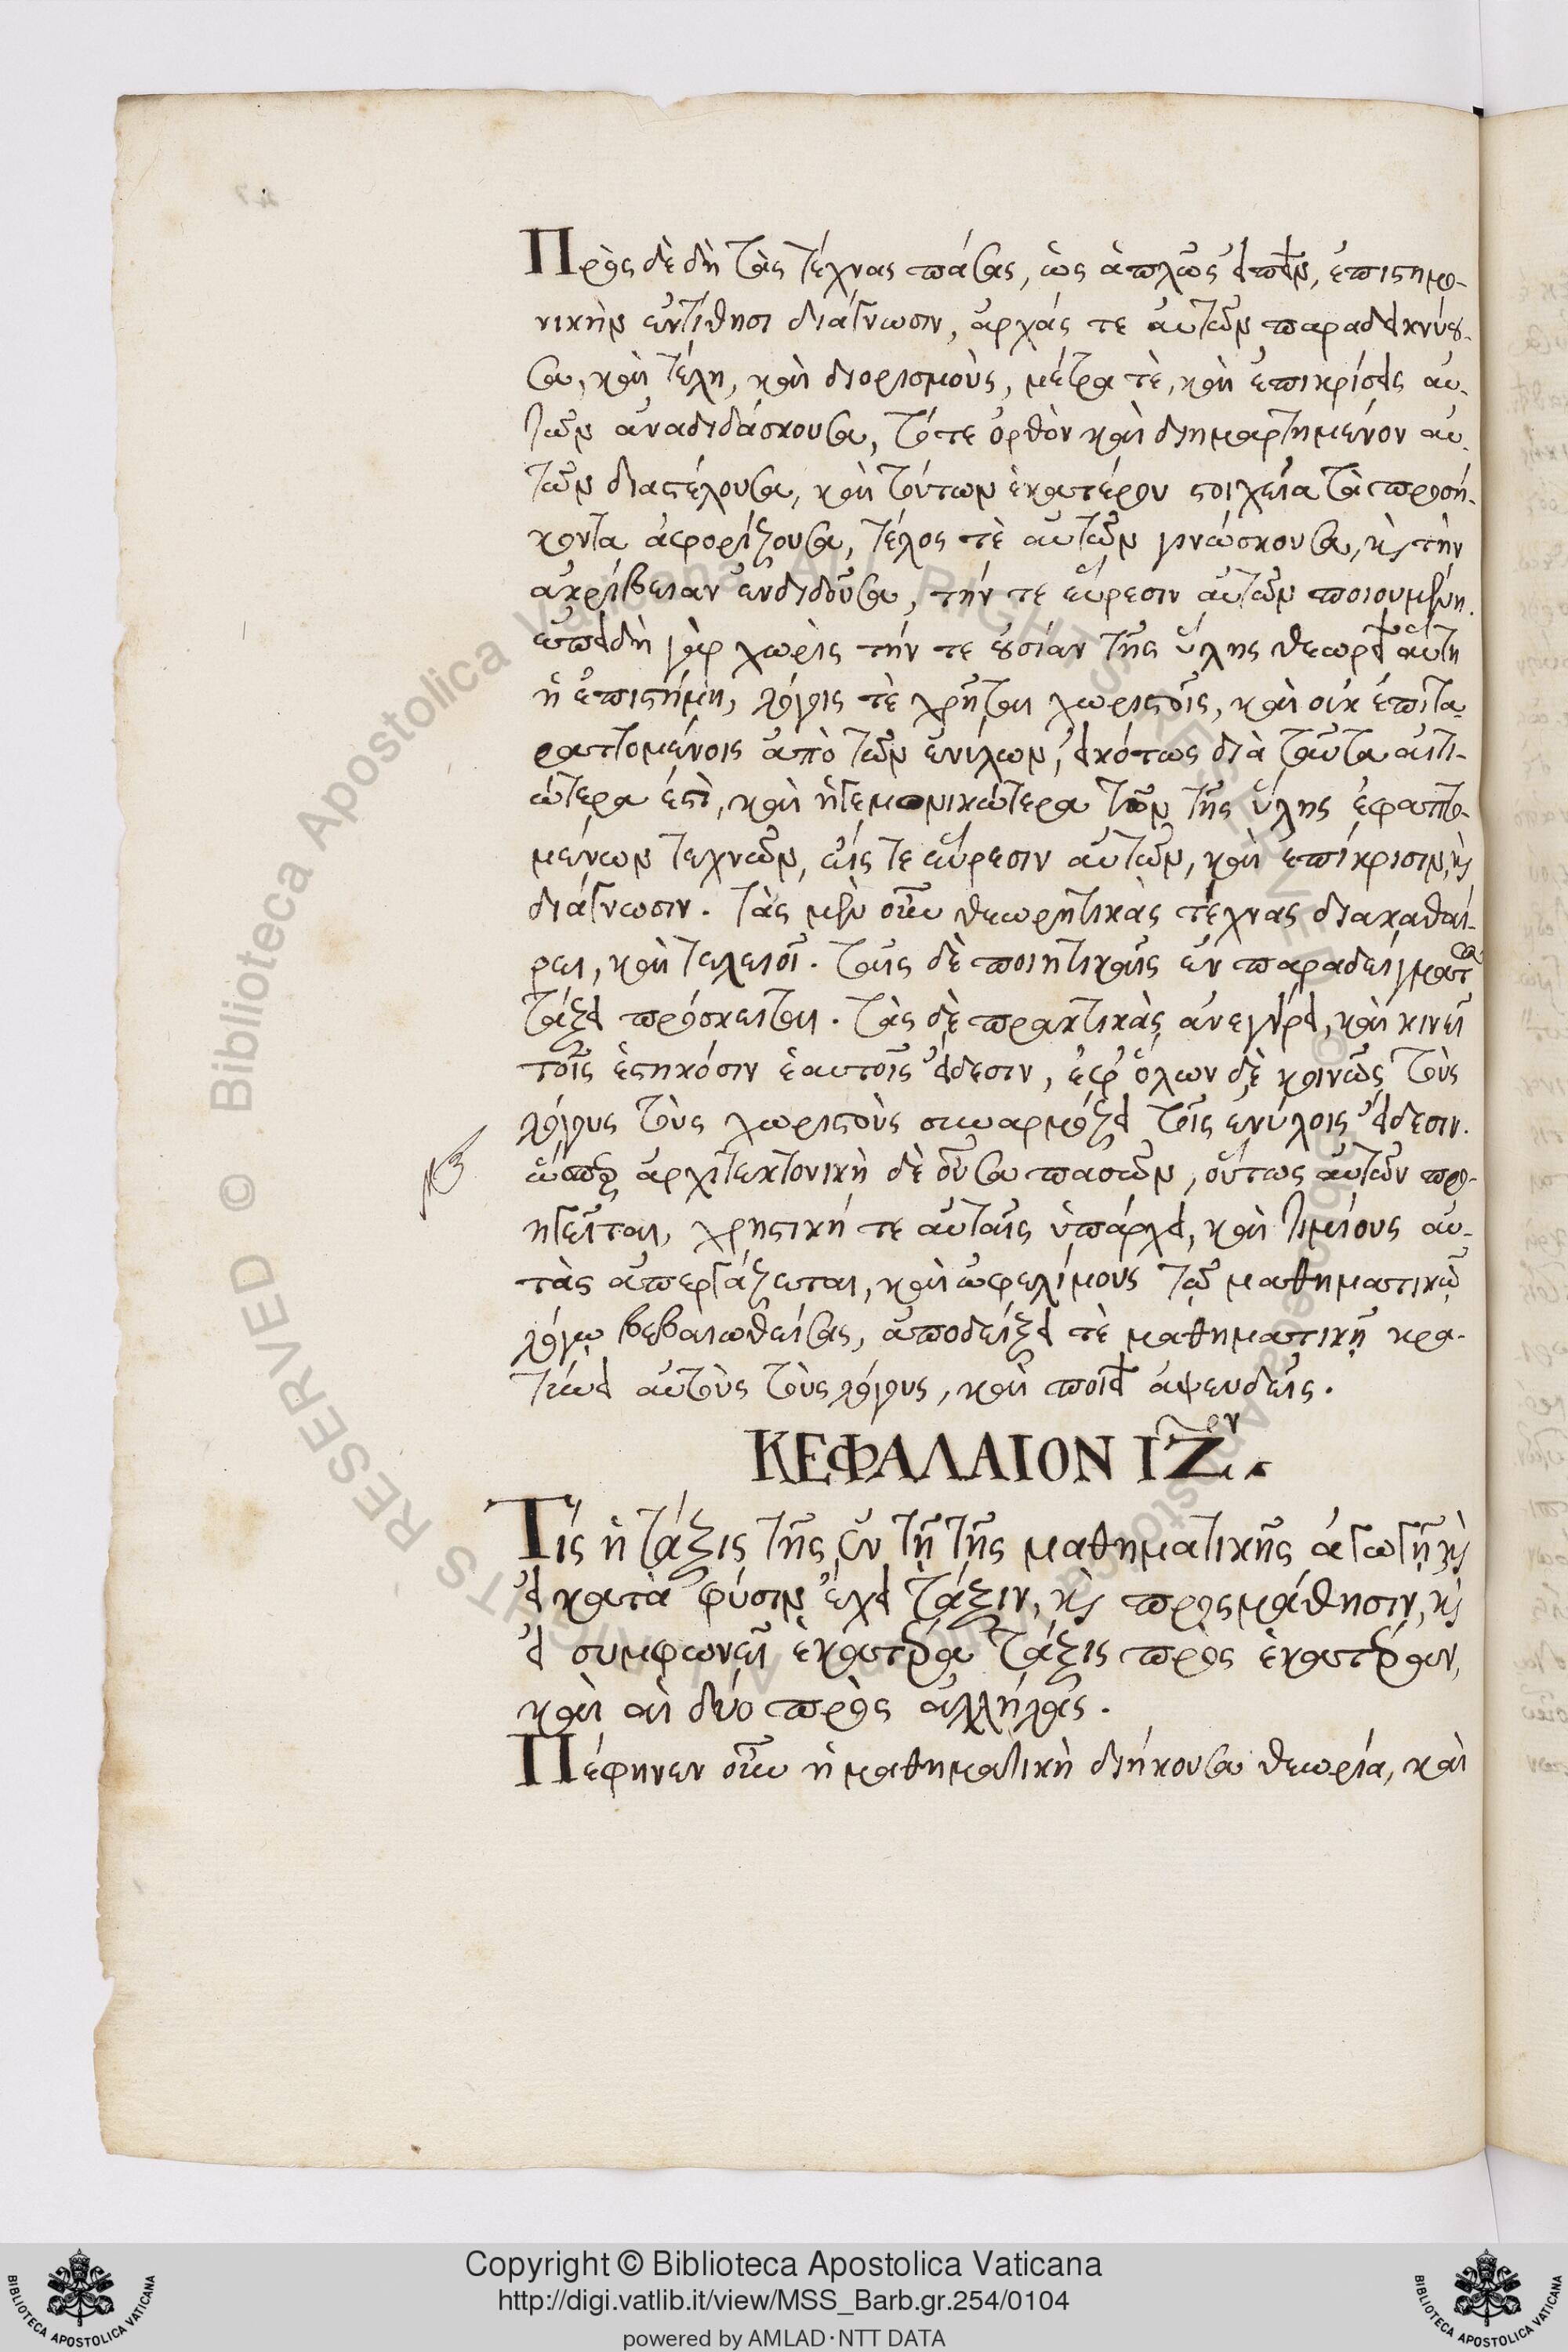 Πρὸς δὲ δὴ τὰς τέχνας πάσας, ὡς ἁπλῶς εἰπεῖν, ἐπιστημο-
νικὴν ἐντίθησι διάγνωσιν, ἀρχάς τε αὐτῶν παραδεικνύου-
σα, καὶ τέλη, καὶ διορισμοὺς, μέτρα τὲ, καὶ ἐπικρίσεις αυ-
τῶν ἀναδιδάσκουσα, τό τε ὀρθὸν καὶ διημαρτημένον αυ-
τῶν διαστέλουσα, καὶ τούτων ἑκατέρου στοιχεῖα τὰ προσή-
κοντα ἀφορίζουσα, τέλος τὲ αὐτῶν γινώσκουσα, καὶ τὴν
ἀκρίβειαν ἐνδιδοῦσα, τήν τε εὕρεσιν αὐτῶν ποιουμένη.
ἐπειδὴ γὰρ χωρὶς τήν τε οὐσίαν τῆς ὕλης θεωρεῖ αὕτη
ἡ ἐπιστήμη, λόγοις τὲ χρῆται χωριστοῖς, καὶ οὐκ ἐπιτα-
ραττομένοις ἀπὸ τῶν ἐνύλων, εἰκότως διὰ ταῦτα αἰτι-
ώτερα ἐστὶ, καὶ ἡγεμονικώτερα τῶν τῆς ὕλης ἐφαπτο-
μένων τεχνῶν, εἴς τε εὕρεσιν αὐτῶν, καὶ ἐπίκρισιν, καὶ
διάγνωσιν. τὰς μὲν οὖν θεωρητικὰς τέχνας διακαθαί-
ρει, καὶ τελειοῖ. ταῖς δὲ ποιητικαῖς ἐν παραδείγματος
τάξει πρόσκειται. τὰς δὲ πρακτικὰς ἀνεγείρει, καὶ κινεῖ
τοῖς ἑστηκόσιν ἑαυτοῖς εἴδεσιν, ἐφ' ὅλων δὲ κοινῶς τοὺς
λόγους τοὺς χωριστοὺς συναρμόζει τοῖς ἐνύλοις εἴδεσιν.
ὥσπερ ἀρχιτεκτονικὴ δὲ οὖσα πασῶν, οὕτως αὐτῶν προ-
ηγεῖται, χρηστική τε αὐταῖς ὑπάρχει, καὶ τιμίους αυ-
τὰς ἀπεργάζεται, καὶ ὠφελίμους τῷ μαθηματικῷ
λόγῳ βεβαιωθείσας, ἀποδείξει τὲ μαθηματικῇ κρα-
τύνει αὐτοὺς τοὺς λόγους, καὶ ποιεῖ ἀψευδεῖς.
ΚΕΦΑΛΑΙΟΝ ΙΖον.
Τίς ἡ τάξις τῆς ἐν τῇ τῆς μαθηματικῆς ἀγωγῇ, καὶ
εἰ κατὰ φύσιν ἔχει τάξιν, καὶ πρὸς μάθησιν, καὶ
εἰ συμφωνεῖ ἑκατέρα τάξις πρὸς ἑκατέραν,
καὶ αἱ δύο πρὸς ἀλλήλας.
Πέφηνεν οὖν ἡ μαθηματικὴ διήκουσα θεωρία, καὶ
Copyright © Biblioteca Apostolica Vaticana
http://digi.vatlib.it/view/MSS_Barb.gr.254/0104
powered by AMLAD·NTT DATA